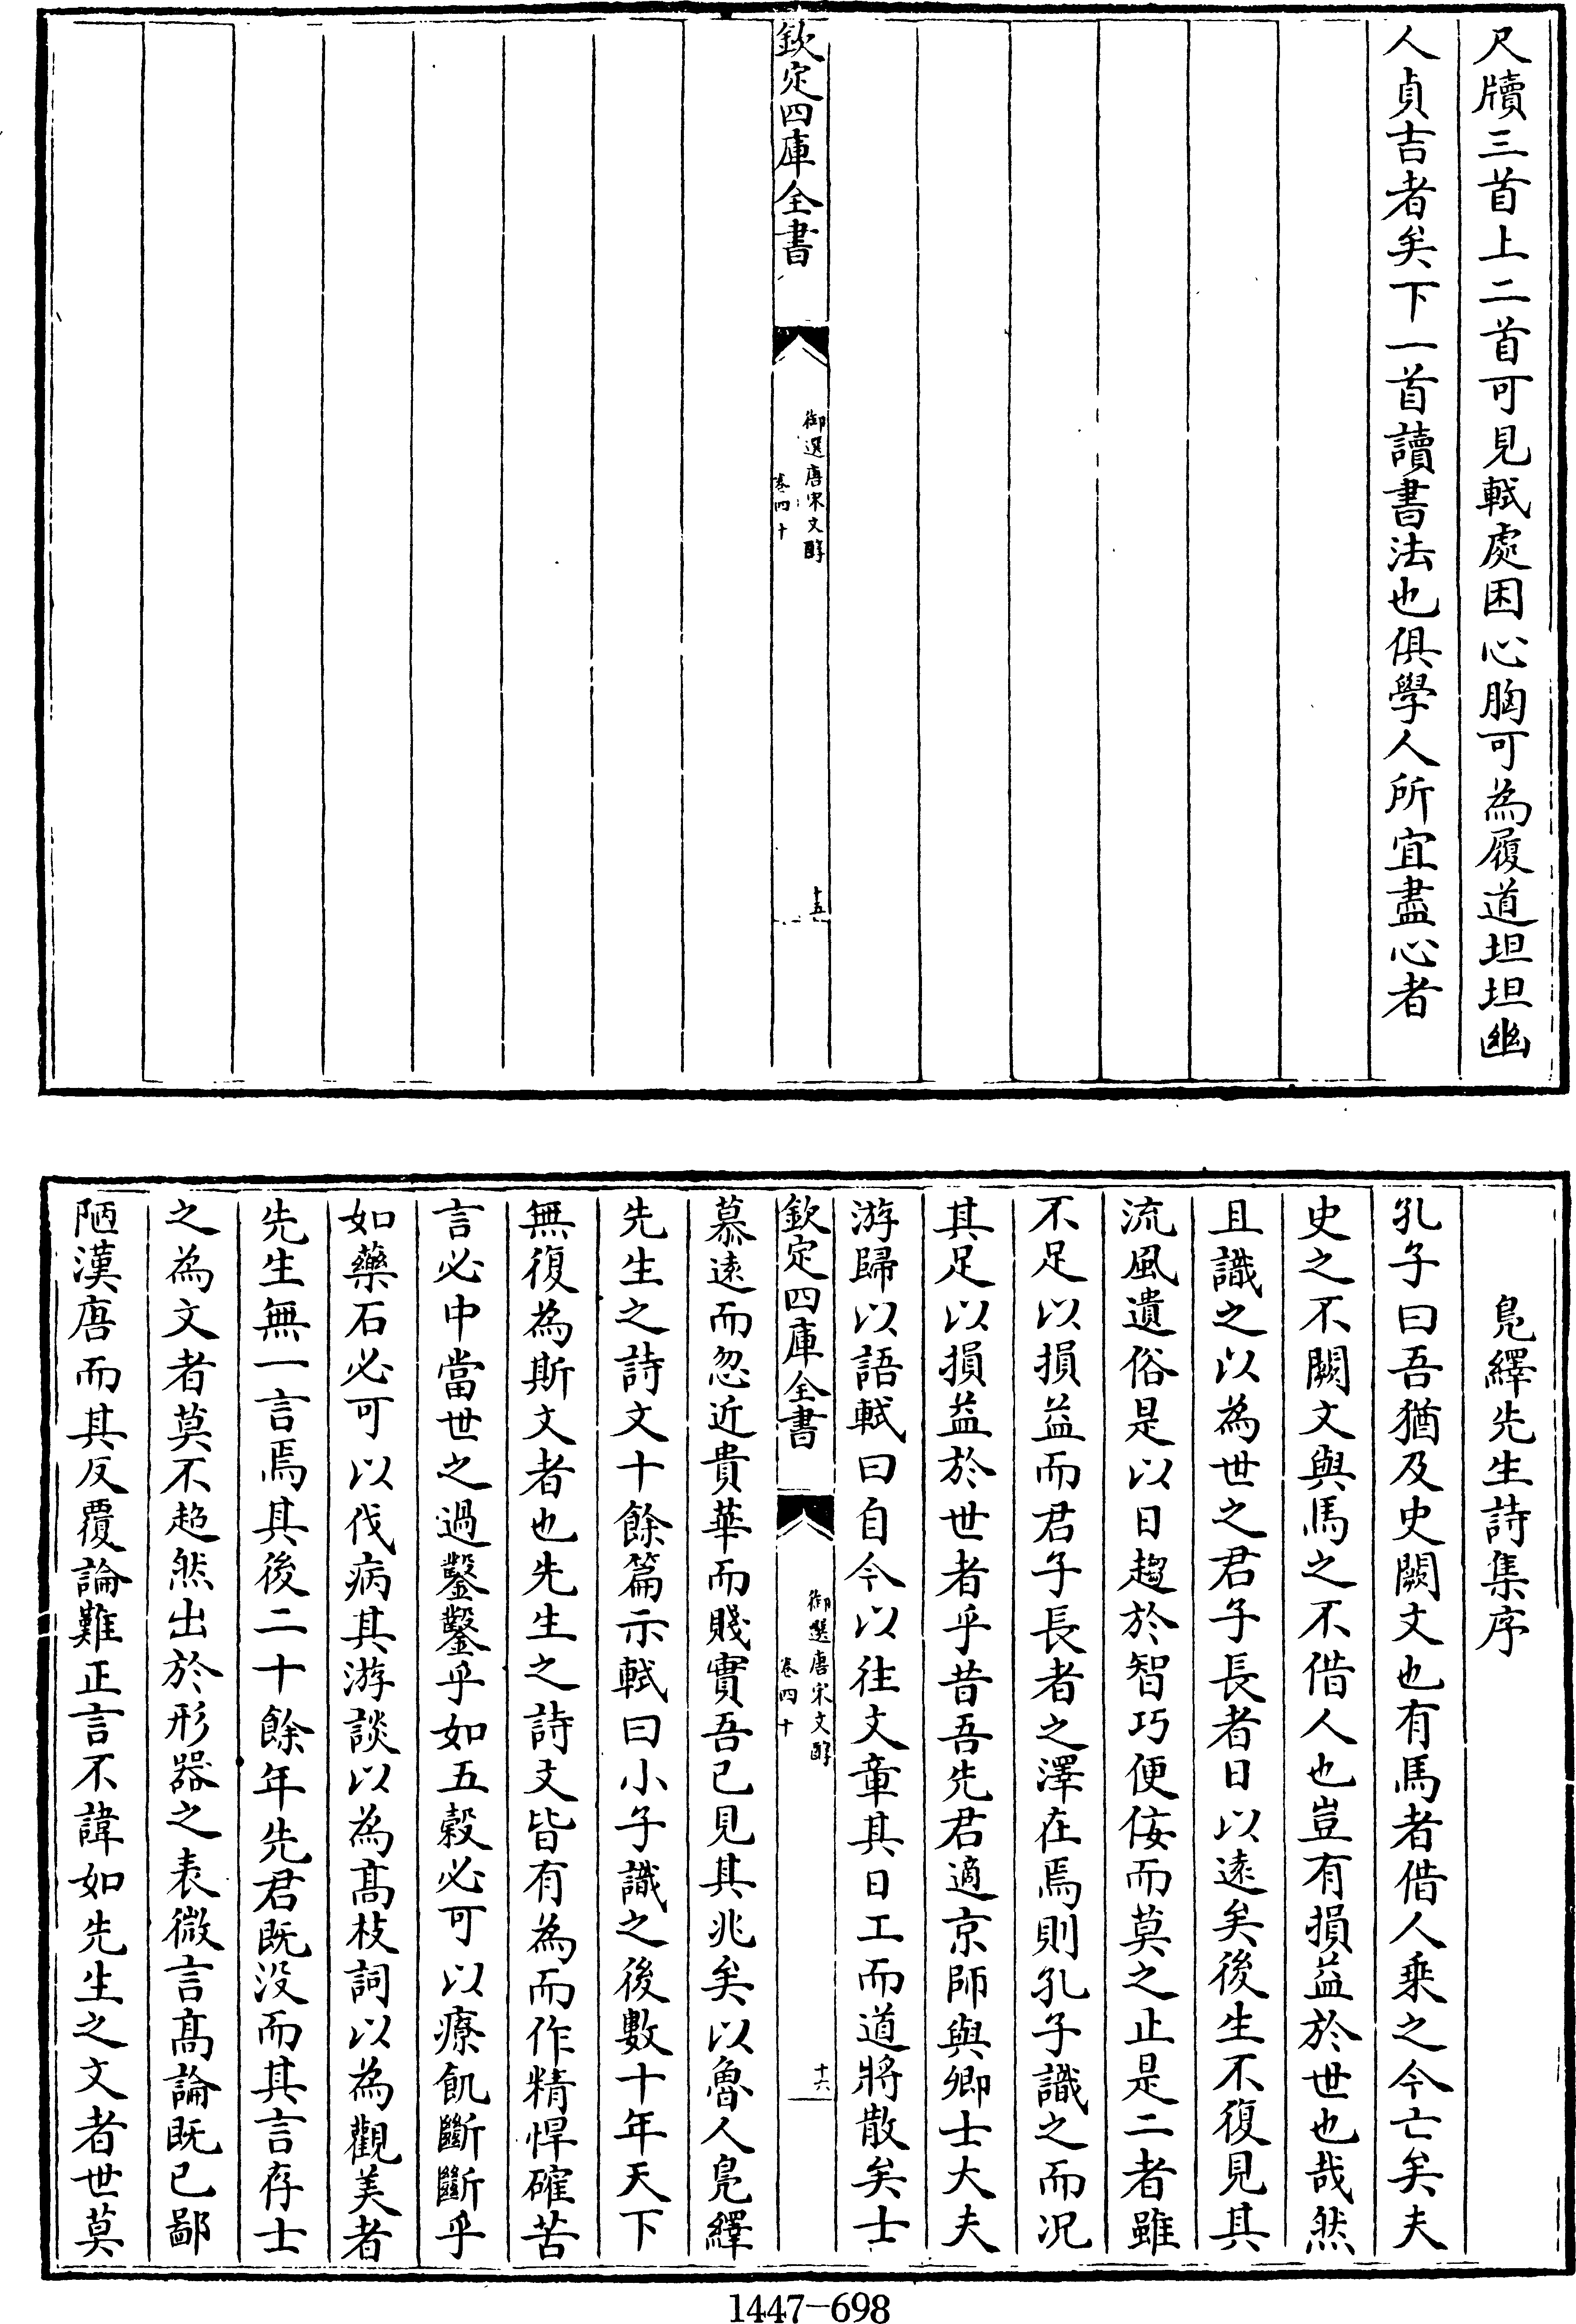 尺牘三首上二首可見軾處困心胸可為履道坦坦幽
人貞吉者矣下一首讀書法也俱學人所宜盡心者
欽定四庫全書
御選唐宋文醇
卷四十
十五
鳧繹先生詩集序
孔子曰吾猶及史闕文也有馬者借人乘之今亡矣夫
史之不闕文與馬之不借人也豈有損益於世也哉然
且識之以為世之君子長者日以遠矣後生不復見其
流風遺俗是以日趨於智巧便佞而莫之止是二者雖
不足以損益而君子長者之澤在焉則孔子識之而況
其足以損益於世者乎昔吾先君適京師與卿士大夫
游歸以語軾曰自今以往文章其日工而道將散矣士
欽定四庫全書
御選唐宋文醇
卷四十
十六
慕遠而忽近貴華而賤實吾已見其兆矣以魯人鳧繹
先生之詩文十餘篇示軾曰小子識之後數十年天下
無復為斯文者也先生之詩文皆有為而作精悍確苦
言必中當世之過鑿鑿乎如五穀必可以療飢斷斷乎
如藥石必可以伐病其游談以為高枝詞以為觀美者
先生無一言焉其後二十餘年先君既沒而其言存士
之為文者莫不超然出於形器之表微言高論既已鄙
陋漢唐而其反覆論難正言不諱如先生之文者世莫
1447-698